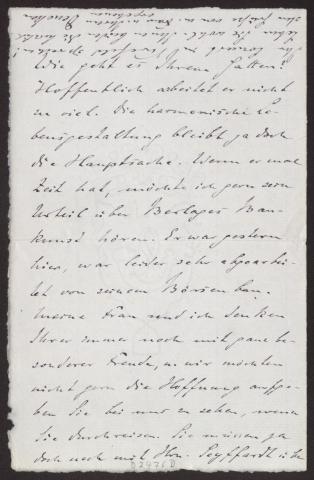 Wie geht es Ihrem Gatten?
Hoffentlich arbeitet er nicht
zu viel. Die harmonische Le-
bensgestaltung bleibt ja doch
die Hauptsache. Wenn er mal
Zeit hat, möchte ich gern sein
Urteil über Berlages Bau-
kunst hören. Er war gestern
hier, war leider sehr abgearbei-
tet von seinem Börsenbau.
Meine Frau und ich denken
Ihrer immer noch mit ganz be-
sonderer Freude, u. wir möchten
nicht gern die Hoffnung aufge-
ben Sie bei uns zu sehen, wenn
Sie durchreisen. Sie müssen ja
doch noch mit Hrn. Seyffardt